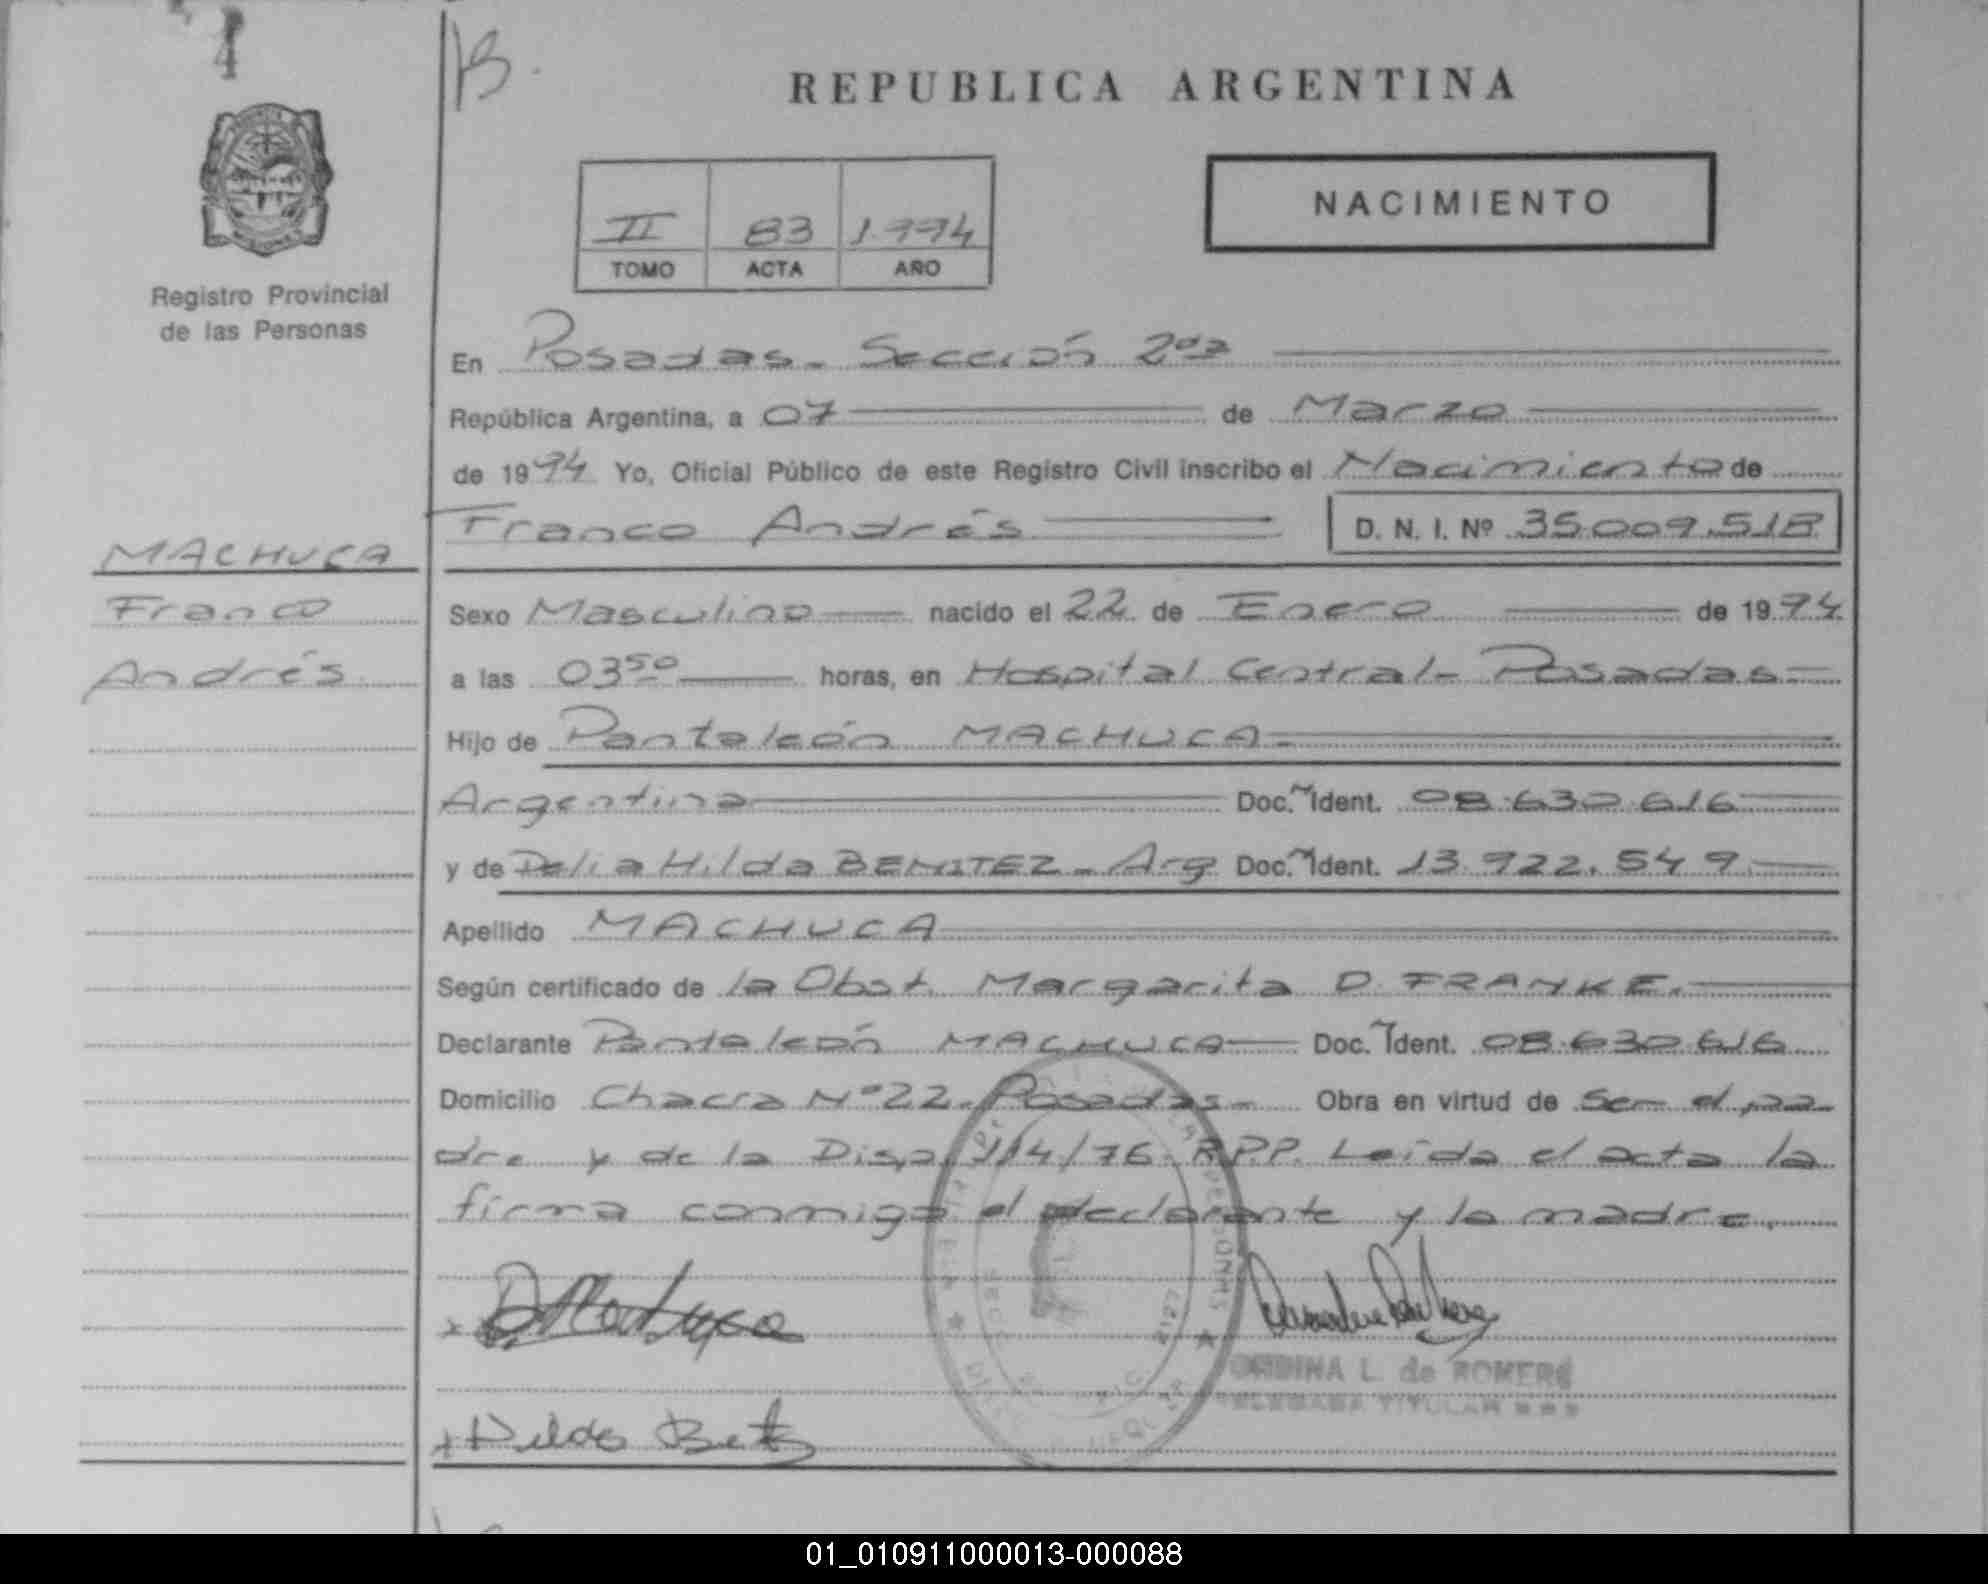 4
B.
REPUBLICA ARGENTINA
NACIMIENTO
II 83 1.994
TOMO ACTA AÑO
Registro Provincial
de las Personas
En Posadas - Sección 2da
República Argentina, a 07 de Marzo
de 1994 Yo, Oficial Público de este Registro Civil inscribo el Nacimiento de
Franco Andrés D. N. I. Nº 35.009.518
MACHUCA
Franco
Andrés
Sexo Masculino nacido el 22 de Enero de 1994
a las 03 50 horas, en Hospital Central - Posadas -
Hijo de Pantaleón MACHUCA -
Argentina Doc. Ident. 08.630.616
y de Delia Hilda BENITEZ - Arg Doc. Ident. 13.922.549
Apellido MACHUCA
Según certificado de la Obst. Margarita D. FRANKE.
Declarante Pantaleón MACHUCA Doc. Ident. 08.630.616
Domicilio Chacra Nº 22 - Posadas - Obra en virtud de Ser el pa
dre y de la Disp. 114/76 - R.P.P. Leída el acta la
firma conmigo el declarante y la madre.
L. de ROMERO
TITULAR
2127
01_010911000013-000088